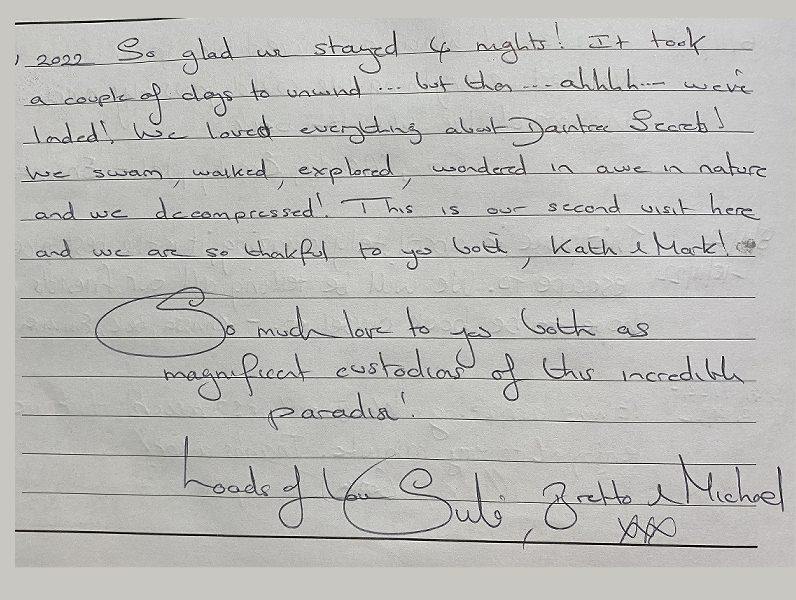 , 2022 So glad we stayed 4 nights! It took
a couple of days to unwind... but then... ahhhh... we've
landed! We loved everything about Daintree Secrets!
We swam, walked, explored, wondered in awe in nature
and we decompressed! This is our second visit here
and we are so thakful to you both, Kath & Mark!
So much love to you both as
magnificent custodians of this incredible
paradise!
Loads of love Sulé, Bretto & Michael
xxx